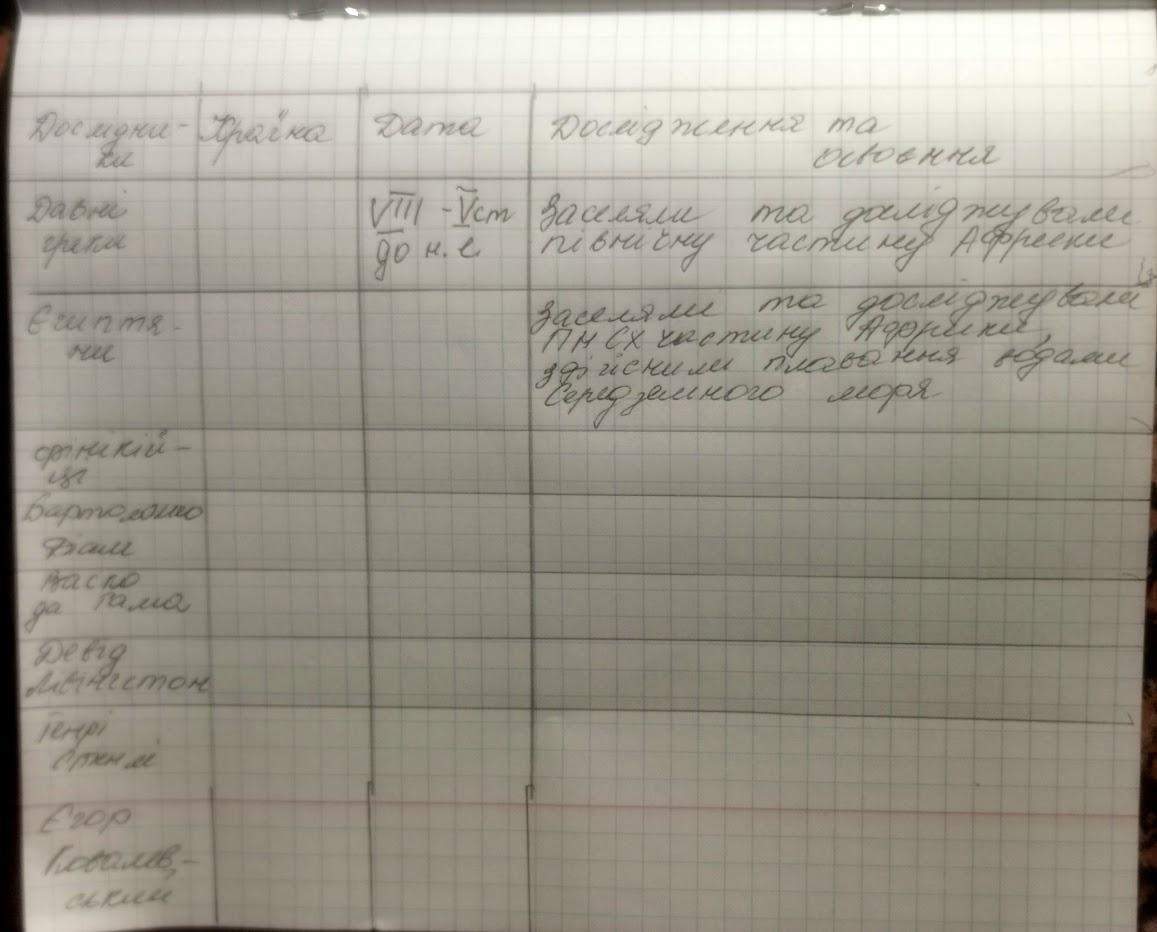 Дослідни- Країна Дата Дослідження та
ки освоєння
Давні VIII - V ст Заселяли та досліджували
греки до н.е. північну частину Африки
Єгиптя- Заселяли та досліджували
ни ПН СХ частину Африки,
здійснили плавання водами
Середземного моря
Фінікій-
ці
Бартоломео
Діаш
Васко
да Гама
Девід
Лівінгстон
Генрі
Стенлі
Єгор
Ковалев-
ський